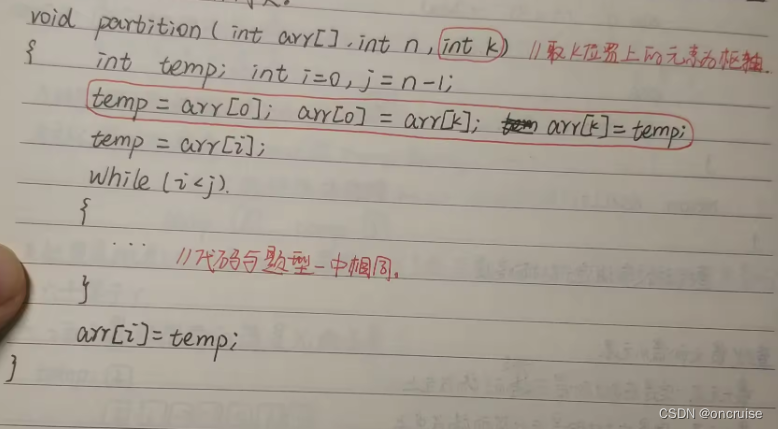 void parbition( int arr[], int n, int k) //取k位置上的元素为枢轴.
{ int temp; int i=0, j=n-1;
temp = arr[0]; arr[0] = arr[k]; arr[k]=temp;
temp = arr[i];
while (i<j).
{
... //代码与题型一中相同.
}
arr[i]=temp;
}
CSDN @oncruise